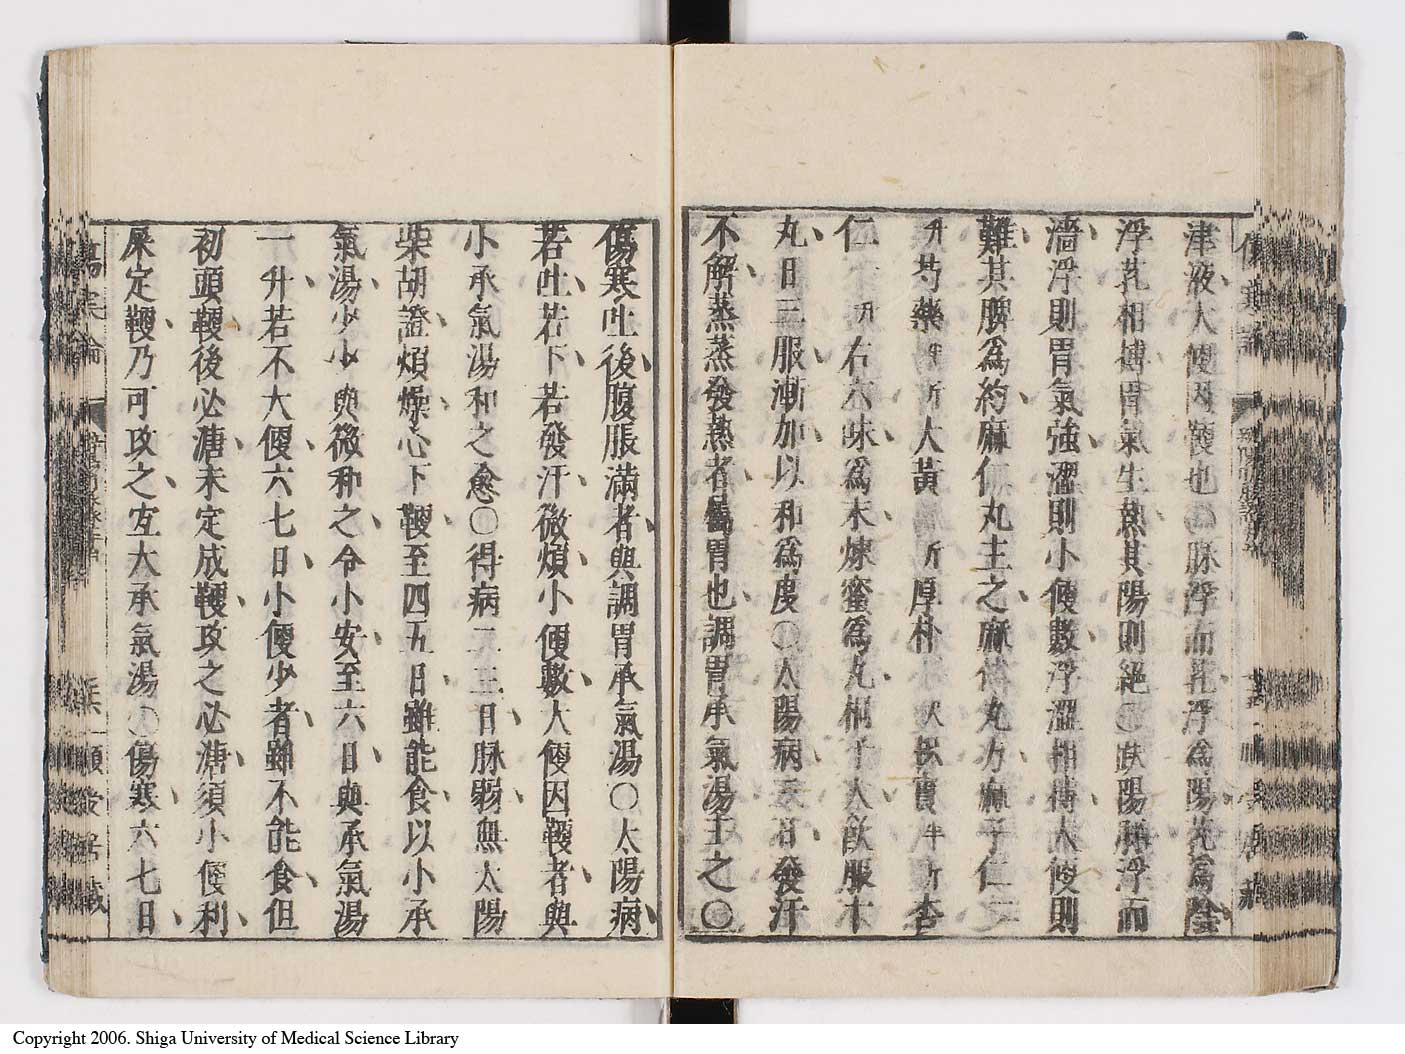 津液大便因鞕也○脉浮而芤浮為陽芤為陰
浮芤相摶胃氣生熱其陽則絕○趺陽脉浮而
濇浮則胃氣強濇則小便數浮濇相摶大便則
難其脾為約麻仁丸主之麻仁丸方麻子仁二
升芍藥半斤大黃斤厚朴枳實半斤杏
仁升右六味為末煉蜜為丸桐子大飲服十
丸日三服漸加以和為度○太陽病三日發汗
不解蒸蒸發熱者屬胃也調胃承氣湯主之○
傷寒吐後腹脹滿者與調胃承氣湯○太陽病
若吐若下若發汗微煩小便數大便因鞕者與
小承氣湯和之愈○得病二三日脉弱無太陽
柴胡證煩燥心下鞕至四五日雖能食以小承
氣湯少少與微和之令小安至六日與承氣湯
一升若不大便六七日小便少者雖不能食但
初頭鞕後必溏未定成鞕攻之必溏須小便利
屎定鞕乃可攻之宜大承氣湯○傷寒六七日
傷寒論
Copyright 2006. Shiga University of Medical Science Library